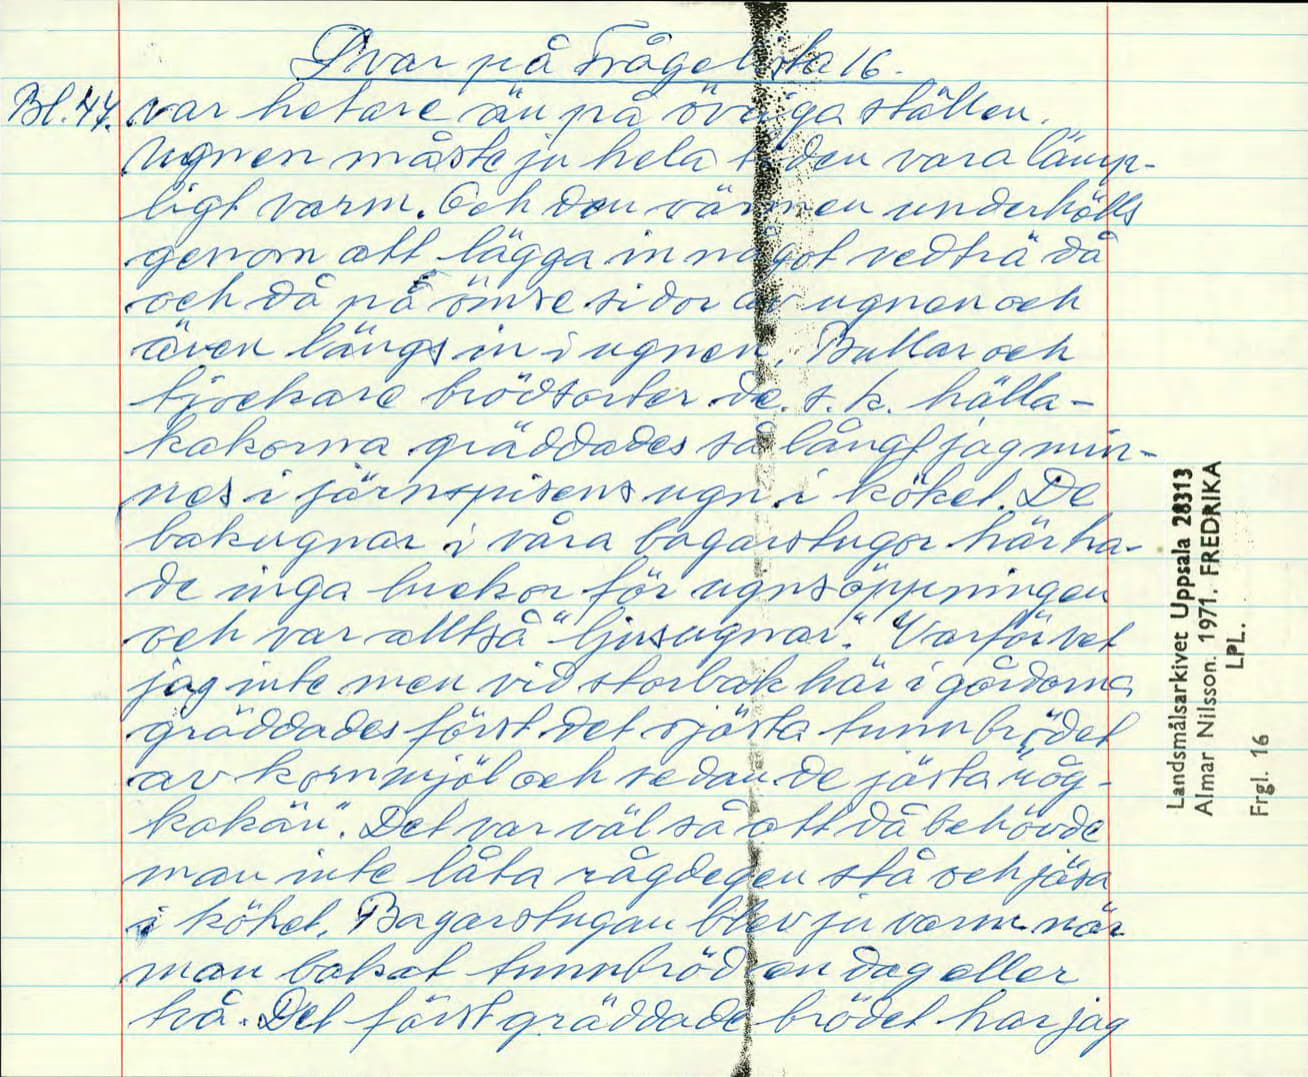 Svar på Frågelista 16.
Bl. 44. var hetare än på övriga ställen.
Ugnen måste ju hela tiden vara lämp-
ligt varm. Och den värmen underhölls
genom att lägga in något vedträ då
och då på ömse sidor av ugnen och
även längs in i ugnen. Bullar och
tjockare brödsorter de s.k. hälla-
kakorna gräddades så långt jag min-
nes i järnspisens ugn i köket. De
bakugnar i våra bagarstugor här ha-
de inga luckor för ugnsöppningen
och var alltså "ljusugnar". Varför vet
jag inte men vid storbak här i gårdarna
gräddades först det ojästa tunnbrödet
av kornmjöl och sedan de jästa "råg-
kakän". Det var väl så att då behövde
man inte låta rågdegen stå och jäsa
i köket. Bagarstugan blev ju varm när
man bakat tunnbröd en dag eller
två. Det först gräddade brödet har jag
Landsmålsarkivet Uppsala 28313
Almar Nilsson. 1971. FREDRIKA
LPL.
Frgl. 16